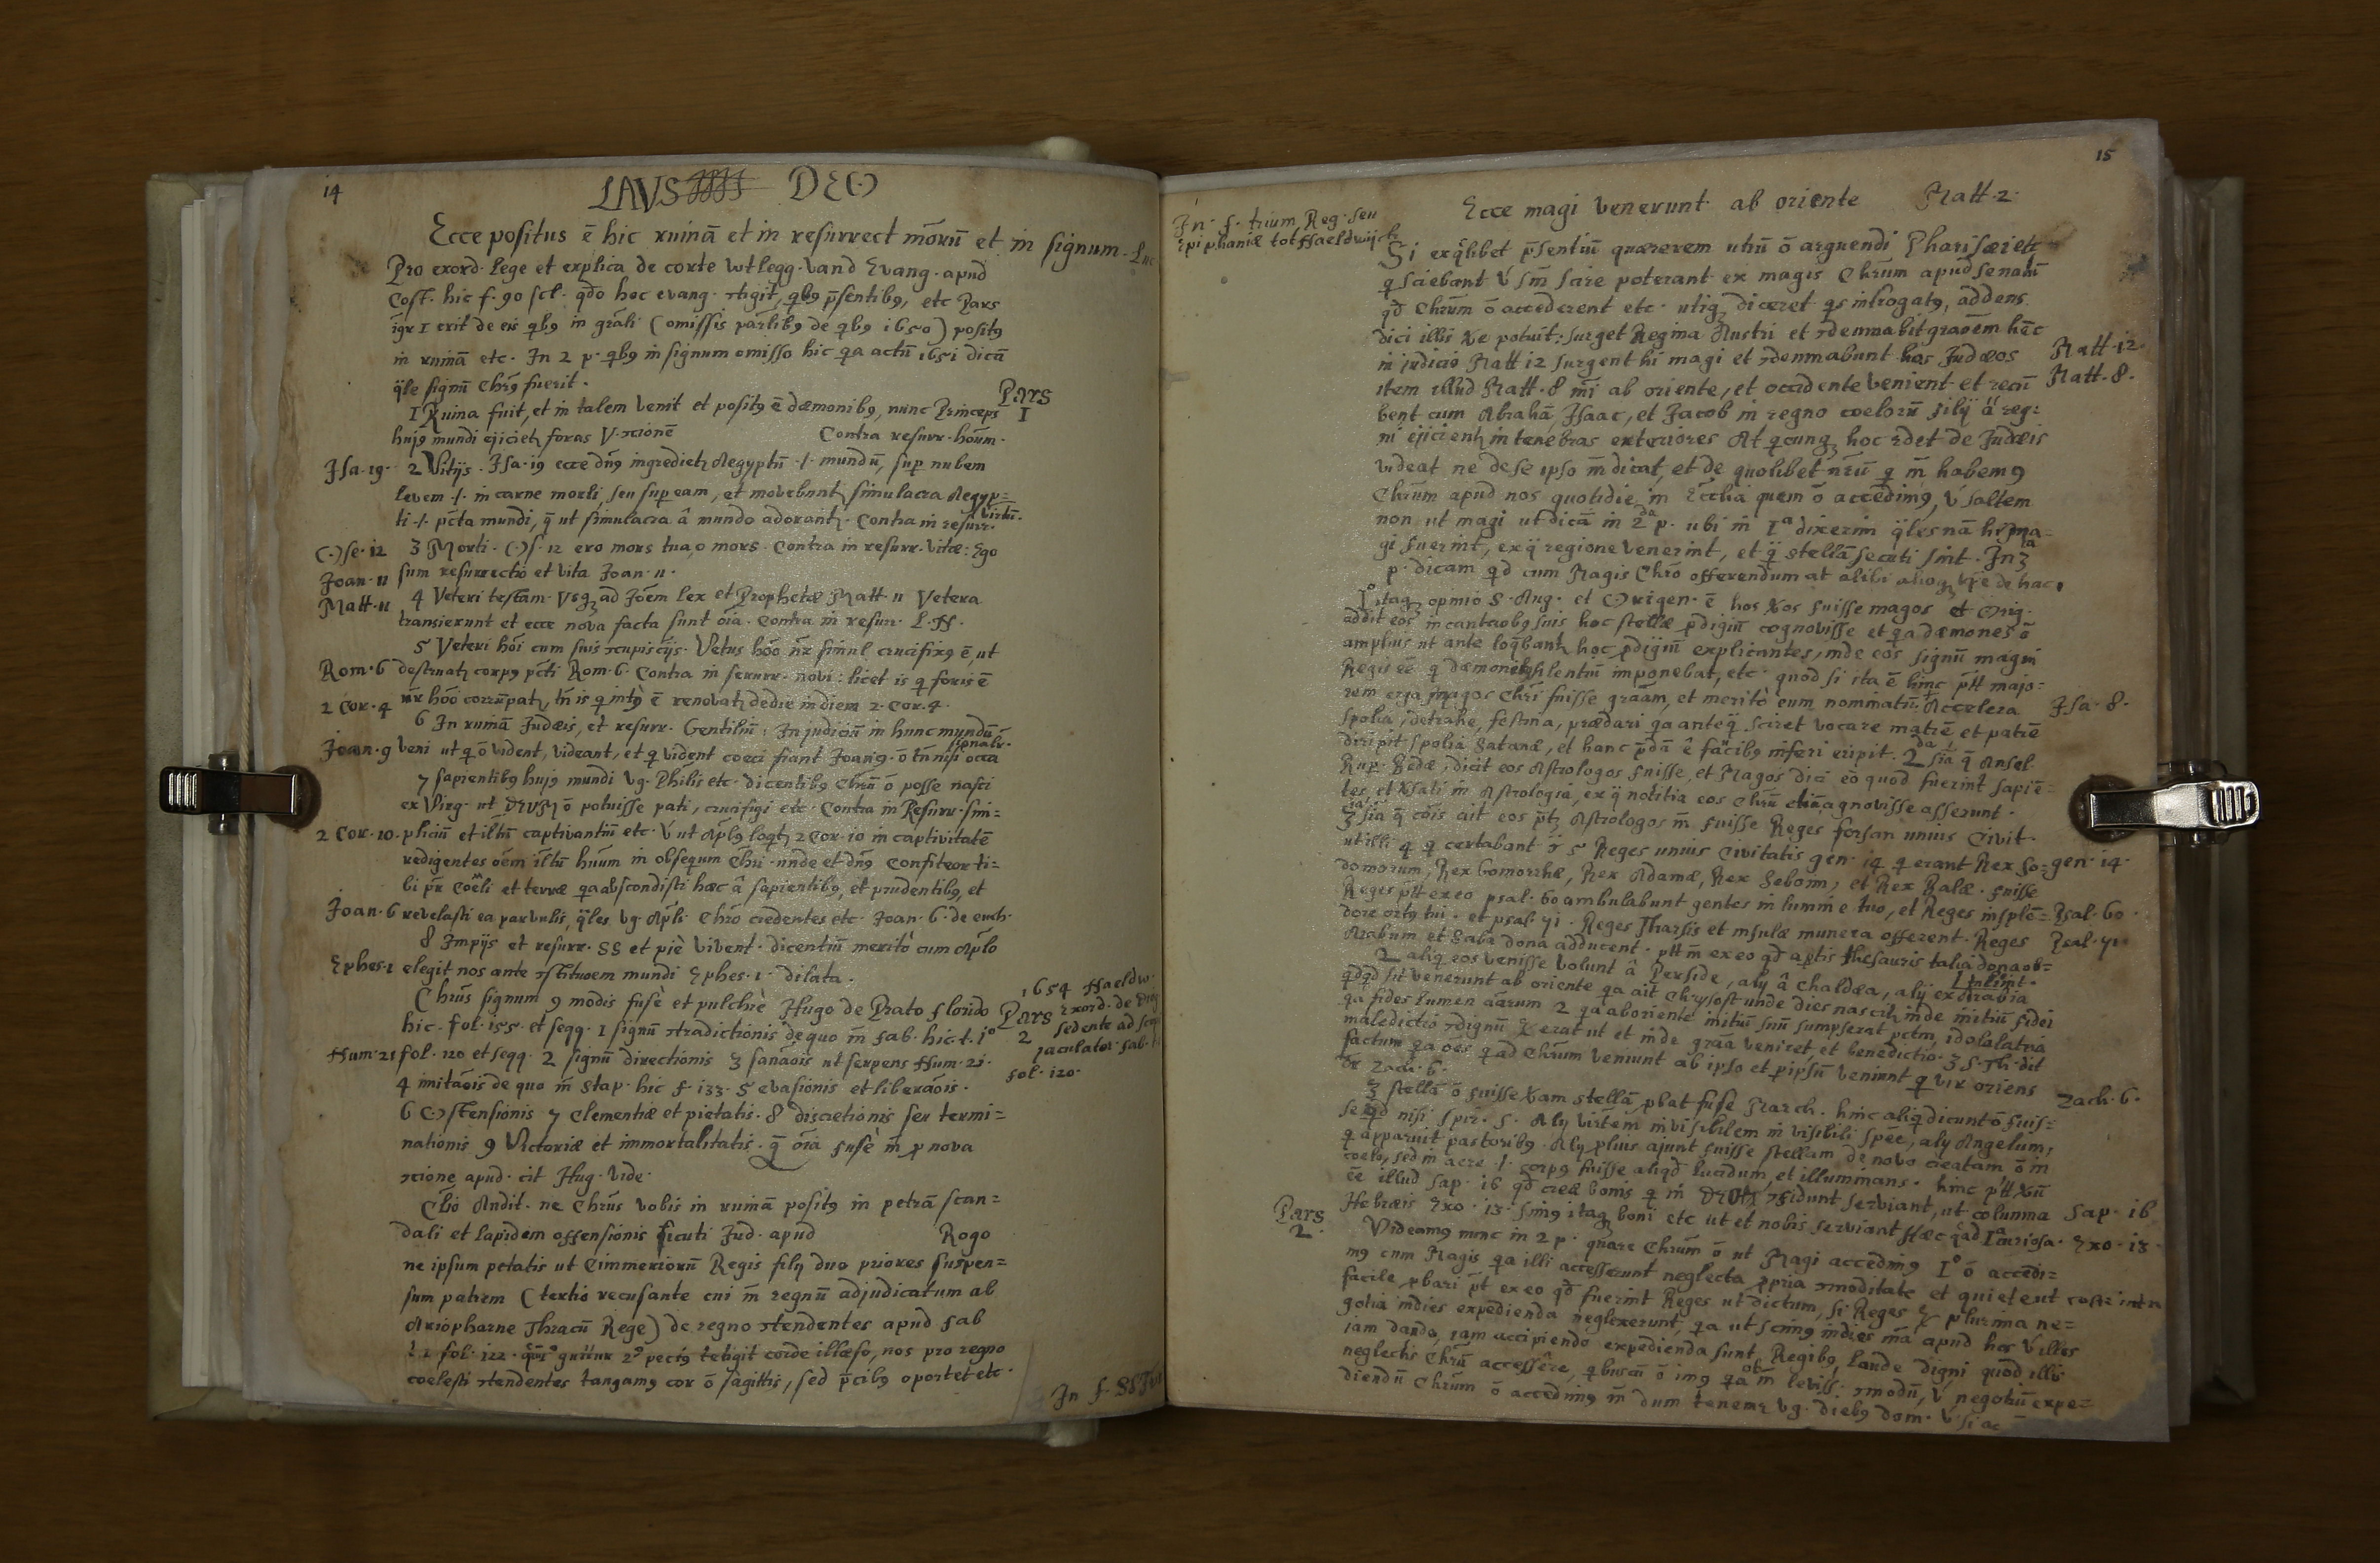 14
LAVS DEO
Ecce positus ē hic ruinā et in resurrect mōrū et in signum. Luc
Pro exord. lege et explica de corte vvtlegg. vand Evang. apud
Cost. hic f. 90 scl. qdo hoc evang. tigit, qbꝯ p̄sentibꝯ, etc Pars
igr 1 erit de eis qbꝯ in grāli (omissis parlibꝯ de qbꝯ 1650) positꝯ
in ruinā etc. In 2 p. qbꝯ in signum omisso hic qa actū 1651 dicā
qle signū Chrꝯ fuerit.
Pars
1
1 Ruina fuit, et in talem venit et positꝯ ē dæmonibꝯ, nunc Princeps
hujꝯ mundi ejicietꝛ foras V. ꝛcionē Contra resurr. hoūm.
Isa. 19. 2 Vitijs. Isa. 19 ecce dn̄ꝯ ingredietꝛ Aegyptū .l. mundū, sup nubem
levem .l. in carne morli, seu sup eam, et movebunt simulacra Aegyp=
ti .l. pc̄ta mundi, q̄ ut simulacra â mundo adorantꝛ. Contra in resurr. virtū.
Ose. 12 3 Morti. Os. 12 ero mors tua, o mors. Contra in resurr. vitæ: Ego
Joan. 11 sum resurrectio et vita Joan. 11.
Matt. 11 4 Veteri testam. Vsqꝫ ad Joēm lex et Prophetæ Matt. 11 Vetera
transierunt et ecce nova facta sunt oīa. Contra in resur. L. N.
5 Veteri hoi cum suis ꝛcupisciis. Vetus hōo nr̄ simul crucifixꝯ ē, ut
Rom. 6 destruatꝛ corpꝯ pc̄ti Rom. 6. Contra in resurr. novi: licet is q foris ē
2 Cor. 4 nr̄ hōo corrūpatꝛ, tn̄ is q intꝯ ē renovatꝛ de die in diem 2. Cor. 4.
6 In ruinā Judæis, et resurr. Gentiliū: In judiciū in hunc mundū
Joan. 9 veni ut q ō vident, videant, et q vident coeci fiant Joan 9. ō tn̄ nisi occa
sionalr.
7 sapientibꝯ hujꝯ mundi vg. Philis etc. dicentibꝯ Chrū ō posse nasci
ex Virg. ut DEVM ō potuisse pati, crucifigi etc. Contra in Resurr. sim=
2 Cor. 10. pliciū et iltū captivantiū etc. V ut Aplꝯ loqtꝛ 2 Cor. 10 in captivitatē
redigentes oēm iltū huūm in obsequm Chri. unde et dn̄ꝯ Confiteor ti=
bi pr̄ Coeli et terræ qa abscondisti hæc â sapientibꝯ, et prudentibꝯ, et
Joan. 6 revelasti ea parvulis, qles vg. Apli Chrō credentes etc. Joan. 6. de euch.
8 Impijs et resurr. SS et piè vivent. dicentiū meritò cum Aplo
Ephes. 1 elegit nos ante ꝛstituoem mundi Ephes. 1. dilata.
Chrūs signum 9 modis fusè et pulchrè Hugo de Prato florido
1654 Haeldw.
Pars exord. de
2 sedente ad
jaculator. fab.
fol. 120.
hic. fol. 155. et seqq. 1 signū ꝛtradictionis de quo m̄ fab. hic. t. 1º
Num. 21 fol. 120 et seqq. 2 signū directionis 3 sanaōis ut serpens Num. 21.
4 imitaōis de quo m̄ Stap. hic f. 133. 5 evasionis et liberaōis.
6 Ostensionis 7 Clementiæ et pietatis. 8 discretionis seu termi=
nationis 9 Victoriæ et immortalitatis. q̄ oīa fusè m̄ p nova
ꝛcione apud. cit Hug. vide.
Clio Audit. ne Chrūs vobis in ruinā positꝯ in petrā scan=
dali et lapidem offensionis sicuti Jud. apud Rogo
ne ipsum petatis ut Cimmeriorū Regis filij duo priores suspen=
sum patrem (tertio recusante cui m̄ regnū adjudicatum ab
Ariopharne Thracū Rege) de regno ꝛtendentes apud fab
t 1 fol. 122. 2º pectꝯ tetigit corde illæso, nos pro regno
coelesti ꝛtendentes tangamꝯ cor ō sagittis, sed p̄cibꝯ oportet etc.
In f. SS
15
In f. trium Reg. seu
Epiphaniæ tot Haeldwijck
Ecce magi venerunt ab oriente Matt. 2.
Si ex qlibet p̄sentiū quærerem utrū ō arguendi Pharisæi etc
q sciebant V sm̄ scire poterant ex magis Chrūm apud se natū
qd Chrūm ō accederent etc. utiqꝫ diceret qs introgatꝯ, addens
dici illis Xe potuit: surget Regina Austri et ꝛdemnabit graōem hāc
Matt. 12.
in judicio Matt 12 surgent hi magi et ꝛdemnabunt hos Judæos
Matt. 8.
item illud Matt. 8 mi ab oriente, et occidente venient et recū
bent cum Abrahā, Isaac, et Jacob in regno coelorū filij ā reg=
ni ejicientꝛ in tenebras exteriores At qcunqꝫ hoc ꝛdet de Judæis
videat ne de se ipso m̄ dicat, et de quolibet nr̄ū q m̄ habemꝯ
Chrūm apud nos quotidie in Ecclia quem ō accedimꝯ, V saltem
non ut magi ut dicā in 2da p. ubi in 1a dixerim qles nā hi ma=
gi fuerint, ex q regione venerint, et q stellā secuti sint. In 3a
p. dicam qd cum Magis Chrō offerendum at alibi
1º itaqꝫ opinio S. Aug. et Origen. ē hos Xos fuisse magos et Orig.
addit eos in cantaobꝯ suis hoc stellæ p̄digiū cognovisse et qa dæmones ō
amplius ut ante loqbantꝛ hoc p̄digiū explicantes, inde eos signū magni
Regis eē q dæmonibꝯ silentiū imponebat, etc. quod si ita ē hinc ptꝫ majo=
rem erga magos Chri fuisse graām, et meritò eum nominatū: Accelera
Isa. 8.
spolia, detrahe, festina, prædari qa anteq̄ sciret vocare matrē et patrē
diripit spolia Satanæ, et hanc p̄dā ê faucibꝯ inferi eripit. 2da sīa q̄ Ansel.
Rup. Bedæ, dicit eos Astrologos fuisse, et Magos dici eò quod fuerint sapiē=
tes, et Xsati in Astrologiâ, ex q notitia eos Chrū etiā agnovisse asserunt.
3ia sīa q̄ cōis ait eos ptꝫ Astrologos m̄ fuisse Reges forsan unius Civit.
ut illi 4 q certabant ꝛ 5 Reges unius Civitatis gen. 14 q erant Rex So=
gen. 14.
domorum, Rex Gomorrhæ, Rex Adamæ, Rex Seboim, et Rex Balæ. fuisse
Reges ptꝫ ex eo psal. 60 ambulabunt gentes in lumine tuo, et Reges insplē=
Psal. 60.
dore ortꝯ tui. et psal. 71. Reges Tharsis et insulæ munera offerent. Reges
Psal. 71.
Arabum et Saba dona adducent. ptꝫ m̄ ex eo qd aptis thesauris talia dona ob=
tulerint.
2 aliq eos venisse volunt â Perside, alij â Chaldæa, alij ex Arabia
qdqd sit venerunt ab oriente qa ait Chrysost unde dies nascitꝛ inde initiū fidei
qa fides lumen aārum 2 qa ab oriente initiū suū sumpserat pctm, idololatria
maledictio ꝛdignū erat ut et inde graā veniret, et benedictio. 3 S. Th. dit
factum qa oēs q ad Chrūm veniunt ab ipso et p ipsū veniunt q vir oriens
dr Zach. 6.
Zach. 6.
3 stellā ō fuisse Xam stellā pbat fuse March. hinc aliq dicunt ō fuis=
se qd nisi Spir. S. Alij virtēm invisibilem in visibili spēe, alij Angelum,
q apparuit pastoribꝯ. Alij plurs ajunt fuisse stellam de novo creatam ō in
coelo, sed in aere .l. corpꝯ fuisse aliqd lucidum, et illuminans. hinc ptꝫ Xū
eē illud Sap. 16 qd creæ bonis q in DEO ꝛfidunt serviant, ut columna
Sap. 16
Hebræis Exo. 13. simꝯ itaqꝫ boni etc ut et nobis serviant Hæc qad 1a curiosa.
Exo. 13.
Pars
2.
Videamꝯ nunc in 2 p. quare Chrūm ō ut Magi accedimꝯ 1º ō accedi=
mꝯ cum Magis qa illi accesserunt neglecta ppria ꝛmoditate et quiete ut
facile pbari pt ex eo qd fuerint Reges ut dictum, si Reges plurima ne=
gotia indies expedienda neglexerunt, qa ut scimꝯ indies m̄a apud hos V illos
iam dando, iam accipiendo expedienda sunt Regibꝯ. laude digni quod illis
neglectis Chrū accessêre, qbuscū ō imꝯ qa m̄ ob leviss. ꝛmodū, V negotiū expe=
diendū Chrūm ō accedimꝯ m̄ dum tenemꝛ vg. diebꝯ dom. V si ac